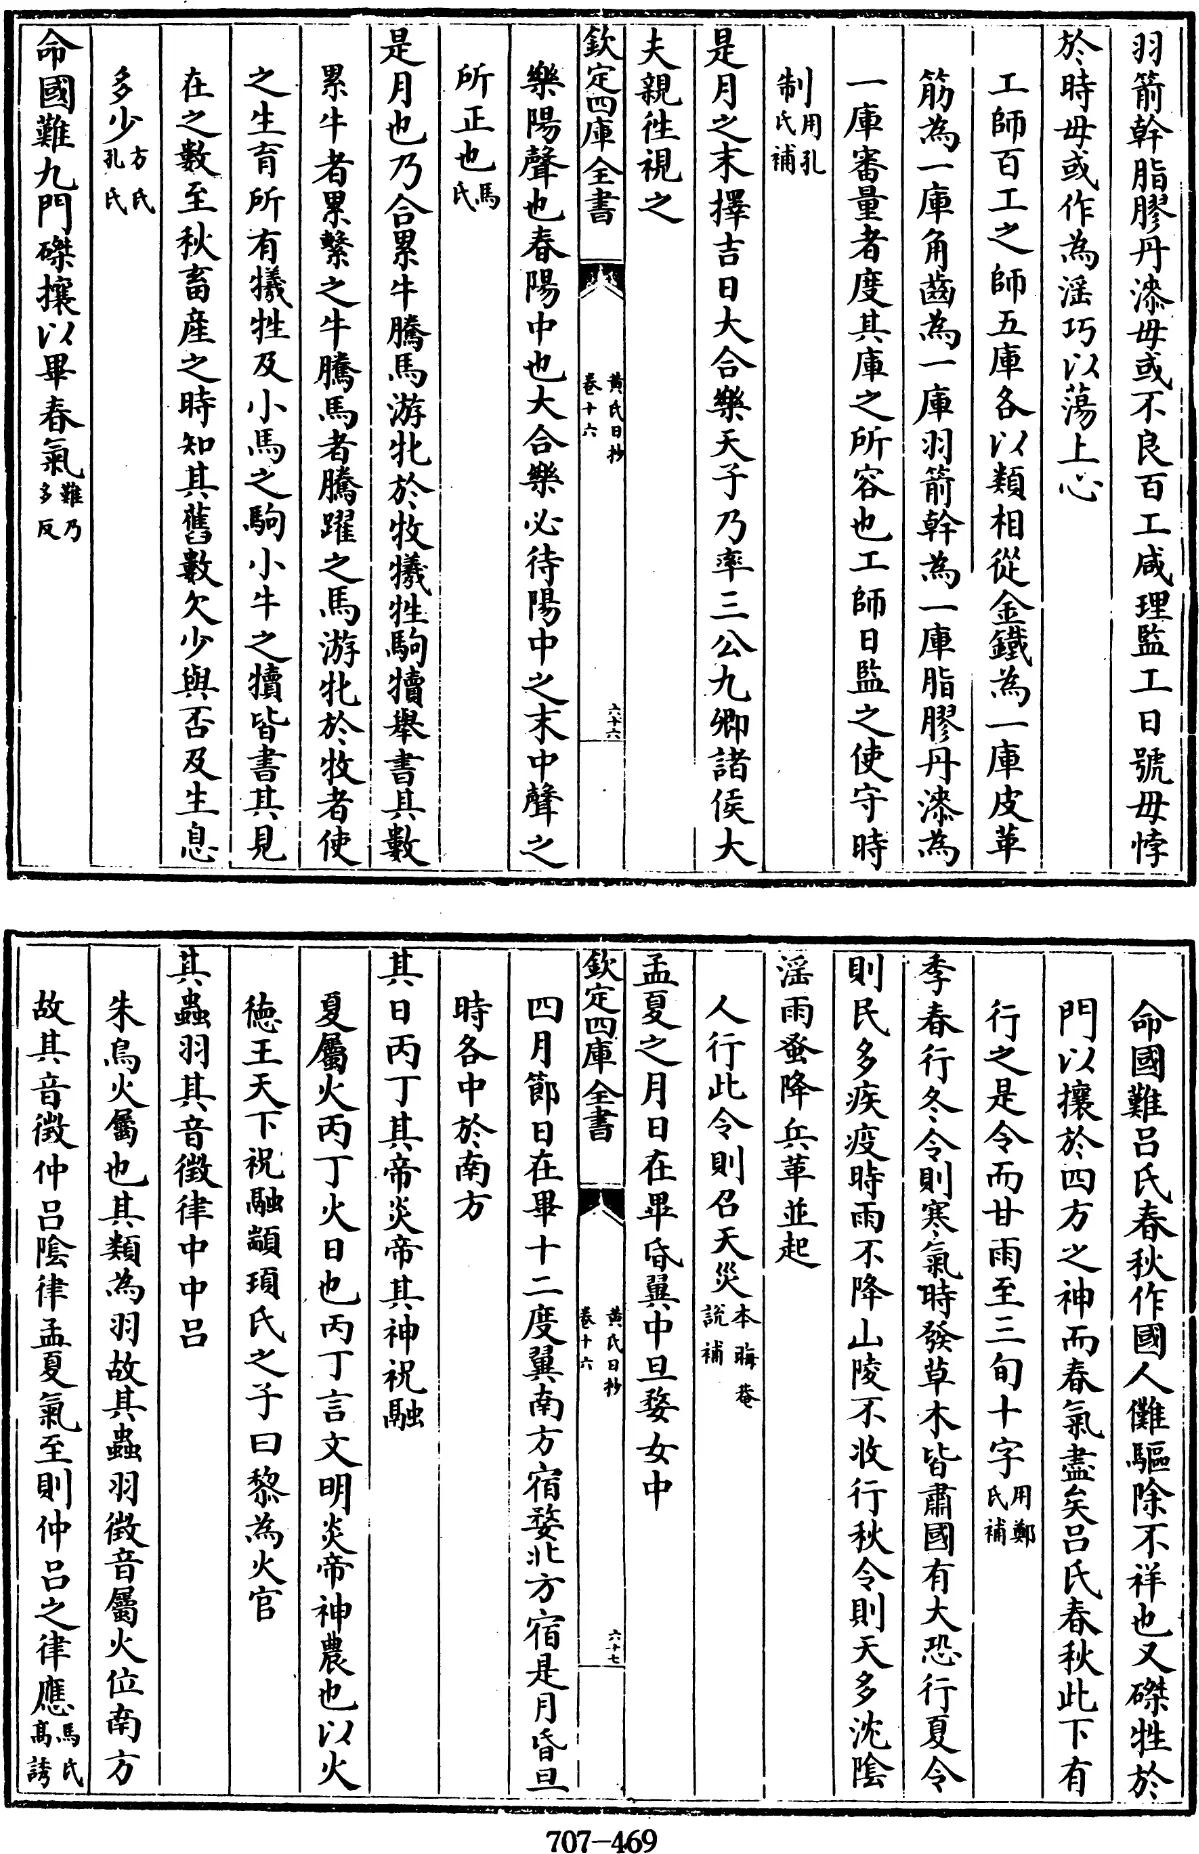 羽箭幹脂膠丹漆毋或不良百工咸理監工日號毋悖
於時毋或作為淫巧以蕩上心
工師百工之師五庫各以類相從金鐵為一庫皮革
筋為一庫角齒為一庫羽箭幹為一庫脂膠丹漆為
一庫審量者度其庫之所容也工師日監之使守時
制用孔氏補
是月之末擇吉日大合樂天子乃率三公九卿諸侯大
夫親徃視之
欽定四庫全書 黃氏日抄卷十六 六十六
樂陽聲也春陽中也大合樂必待陽中之末中聲之
所正也馬氏
是月也乃合累牛騰馬游牝於牧犧牲駒犢舉書其數
累牛者累繫之牛騰馬者騰躍之馬游牝於牧者使
之生育所有犧牲及小馬之駒小牛之犢皆書其見
在之數至秋畜產之時知其舊數欠少與否及生息
多少方氏孔氏
命國難九門磔攘以畢春氣難乃多反
命國難呂氏春秋作國人儺驅除不祥也又磔牲於
門以攘於四方之神而春氣盡矣呂氏春秋此下有
行之是令而甘雨至三旬十字用鄭氏補
季春行冬令則寒氣時發草木皆肅國有大恐行夏令
則民多疾疫時雨不降山陵不收行秋令則天多沈陰
淫雨蚤降兵革並起
人行此令則召天災本晦菴說補
孟夏之月日在畢昏翼中旦婺女中
欽定四庫全書 黃氏日抄卷十六 六十七
四月節日在畢十二度翼南方宿婺北方宿是月昏旦
時各中於南方
其日丙丁其帝炎帝其神祝融
夏屬火丙丁火日也丙丁言文明炎帝神農也以火
徳王天下祝融顓頊氏之子曰黎為火官
其蟲羽其音徵律中中呂
朱鳥火屬也其類為羽故其蟲羽徵音屬火位南方
故其音徵仲呂陰律孟夏氣至則仲呂之律應馬氏高誘
707-469